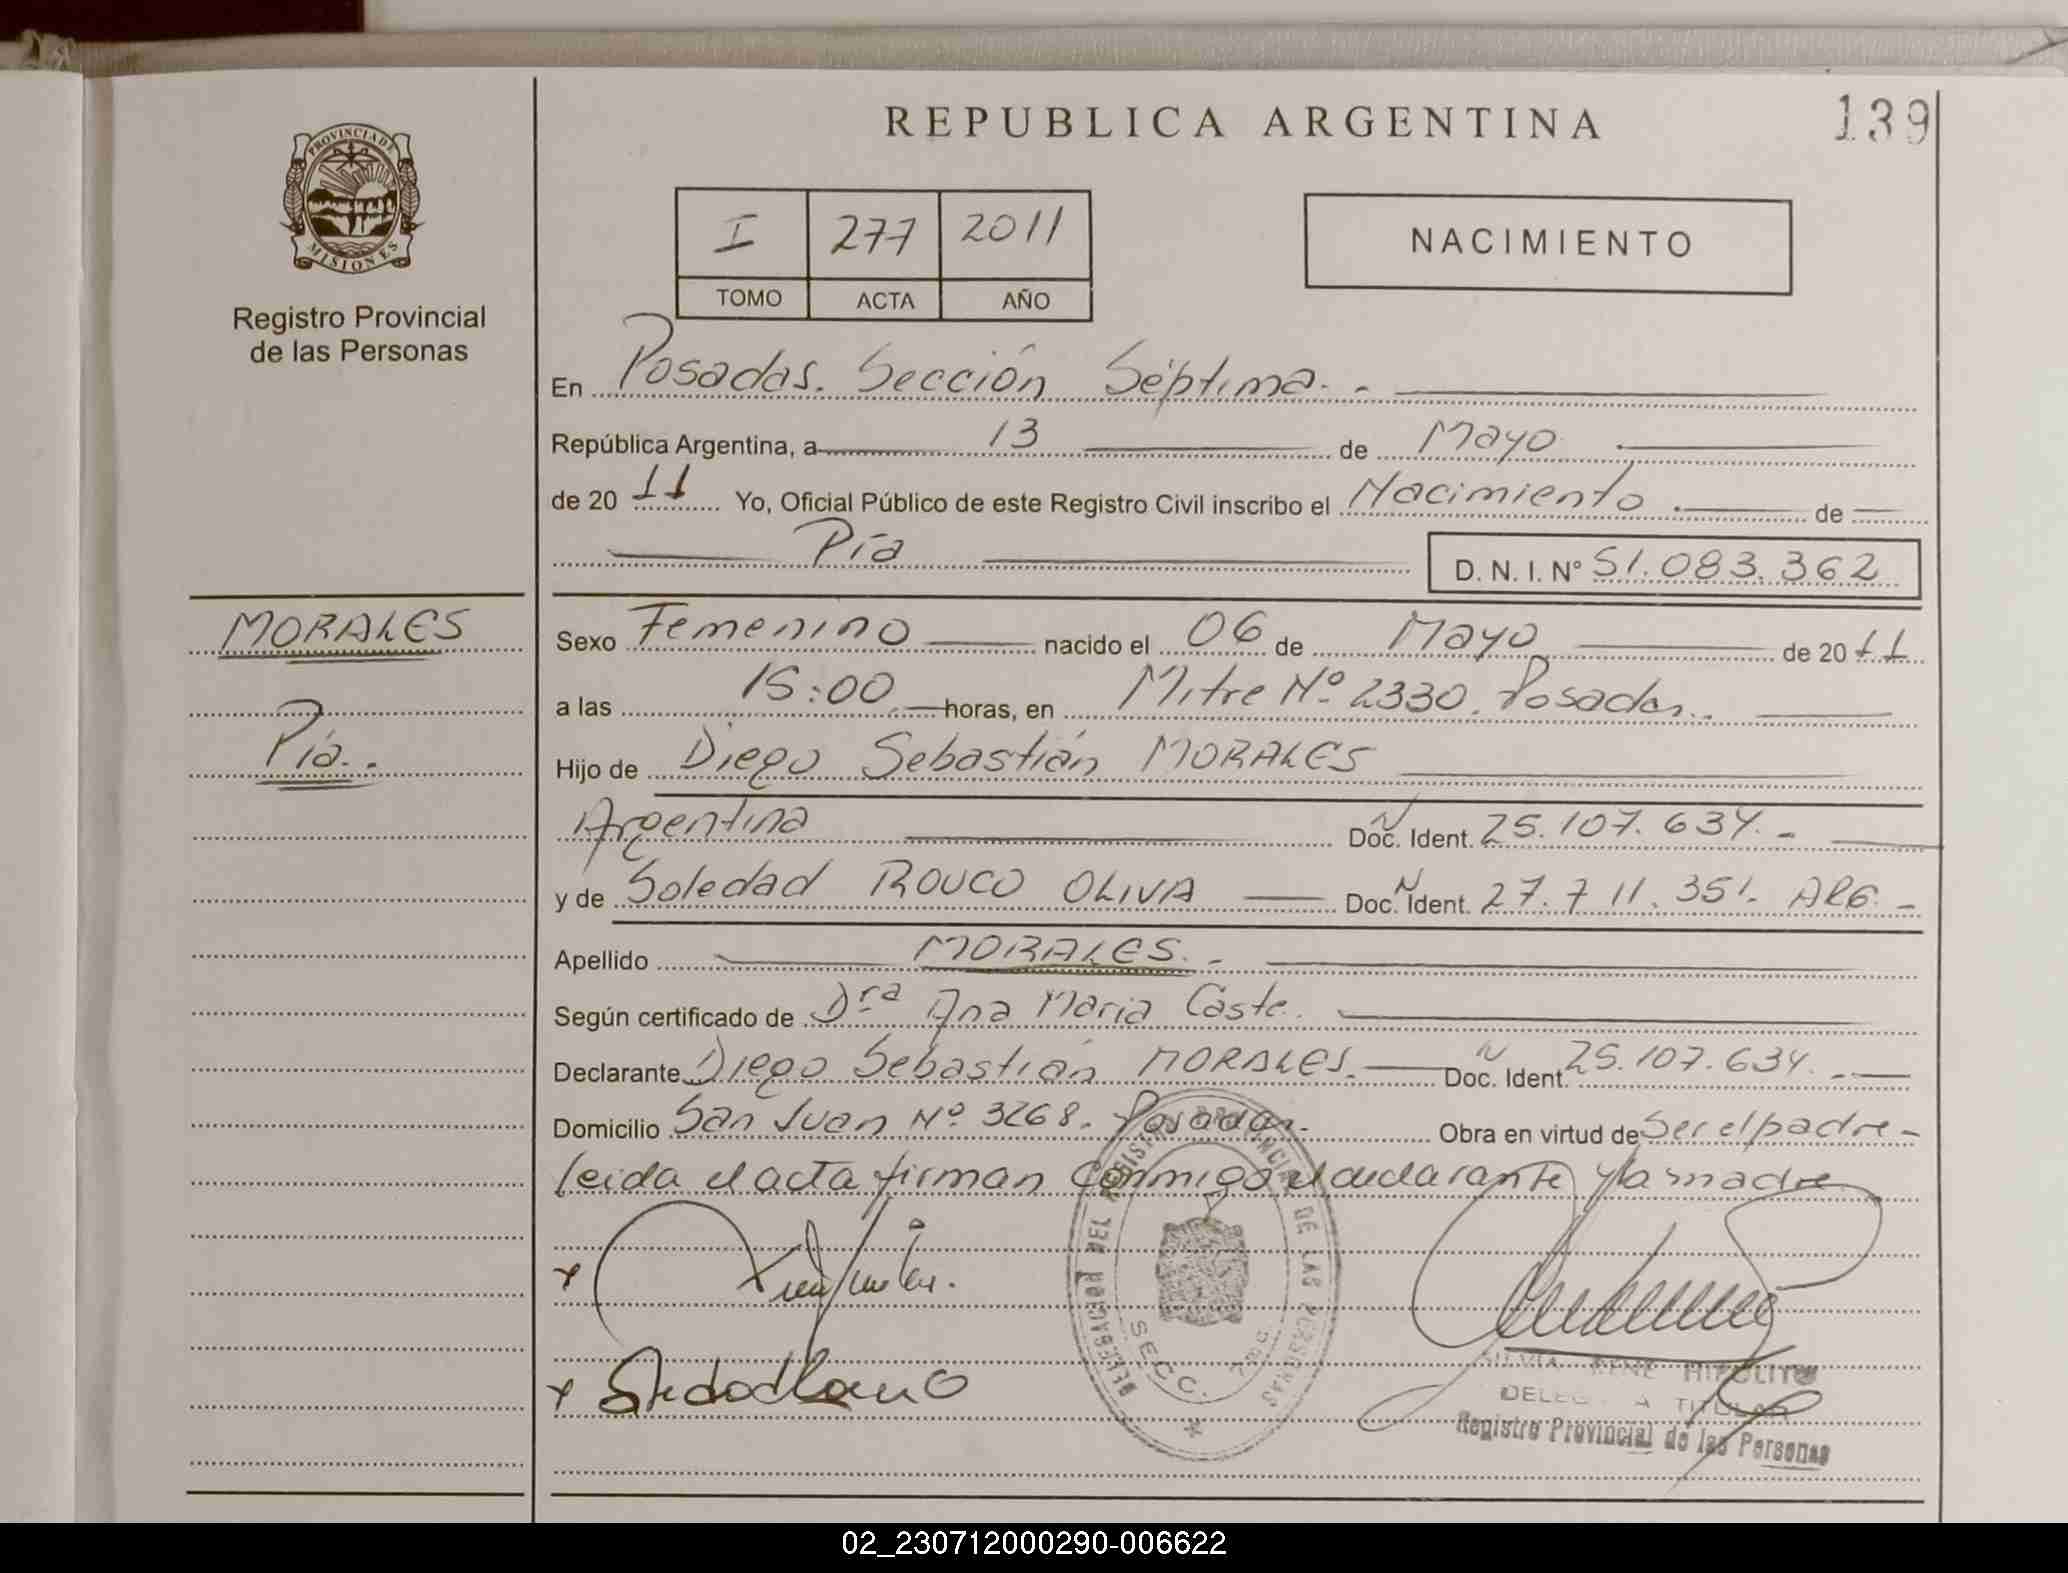 REPUBLICA ARGENTINA
139
PROVINCIA DE MISIONES
Registro Provincial
de las Personas
I 277 2011
TOMO ACTA AÑO
NACIMIENTO
En Posadas. Sección Séptima.-
República Argentina, a 13 de Mayo
de 20 11 Yo, Oficial Público de este Registro Civil inscribo el Nacimiento de
Pía D. N. I. N° 51.083.362
MORALES
Pía.
Sexo Femenino nacido el 06 de Mayo de 20 11
a las 15:00 horas, en Mitre Nº 2330. Posadas.
Hijo de Diego Sebastián MORALES
Argentina Doc. N Ident. 25.107.634.-
y de Soledad ROUCO OLIVA Doc. N Ident. 27.711.351. ARG.-
Apellido MORALES.-
Según certificado de Dra Ana Maria Caste.
Declarante Diego Sebastián MORALES.- Doc. N Ident. 25.107.634.-
Domicilio San Juan Nº 3268. Posadas. Obra en virtud de Ser el padre-
leida el acta firman conmigo el declarante y la madre
DELEGACION DEL REGISTRO PROVINCIAL DE LAS PERSONAS
SECC. 7ma
SILVIA IRENE HIPOLITO
DELEGADA TITULAR
Registro Provincial de las Personas
02_230712000290-006622